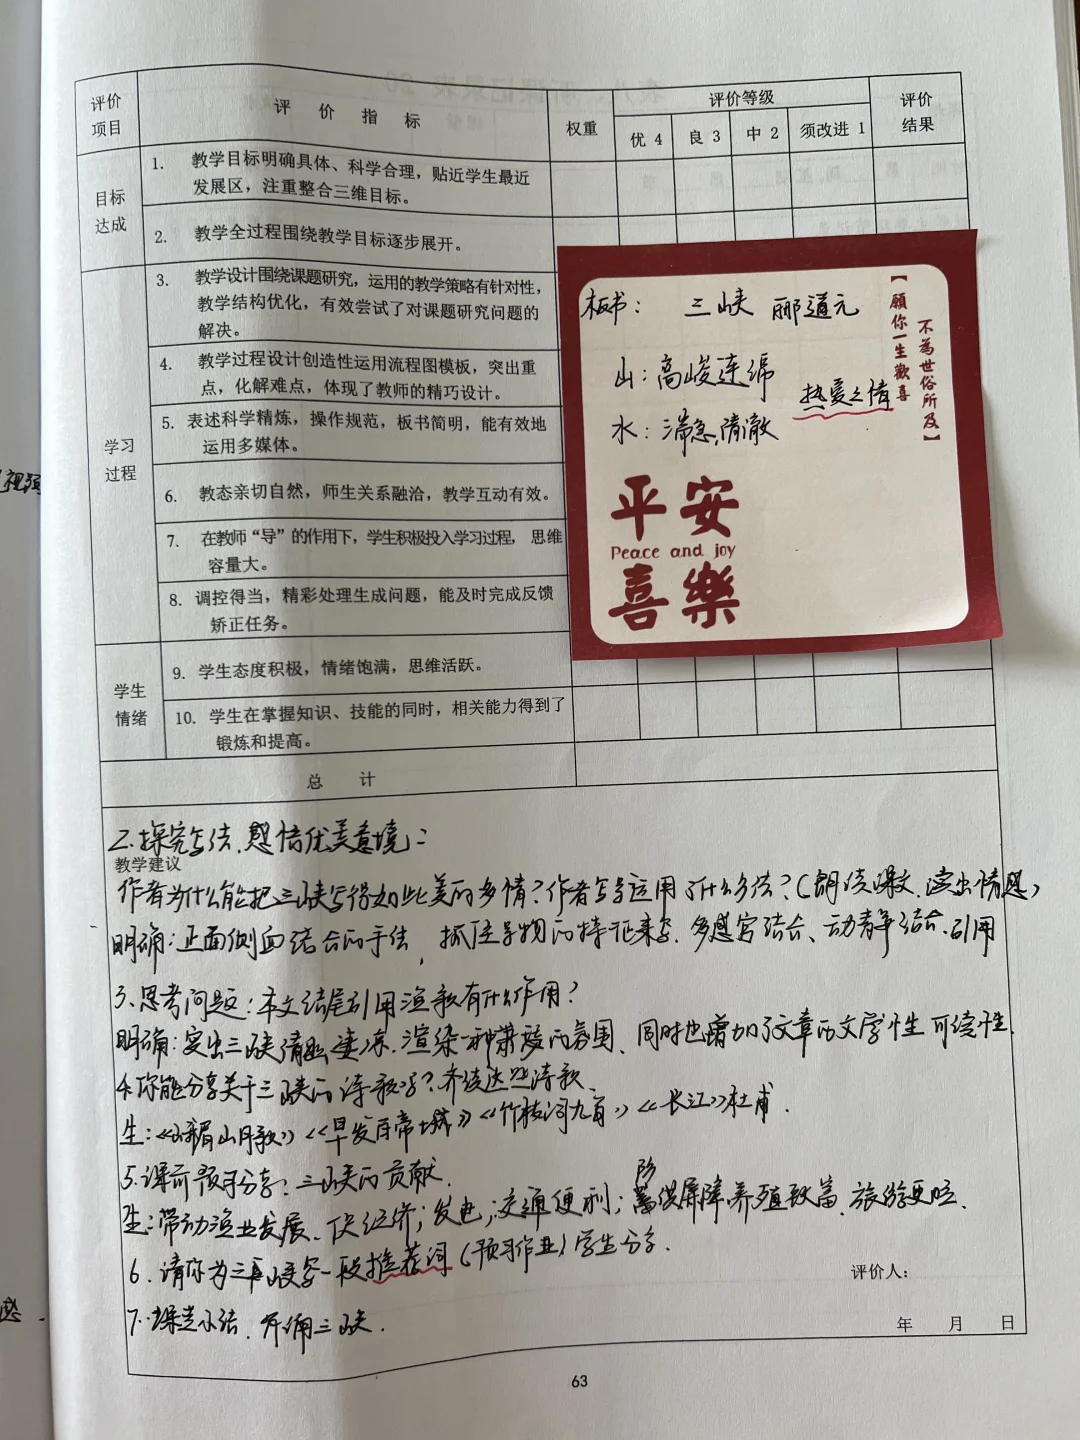 评价项目 评价指标 权重 评价等级 评价结果
优 4 良 3 中 2 须改进 1
目标达成
1. 教学目标明确具体、科学合理，贴近学生最近
发展区，注重整合三维目标。
2. 教学全过程围绕教学目标逐步展开。
学习过程
3. 教学设计围绕课题研究，运用的教学策略有针对性，
教学结构优化，有效尝试了对课题研究问题的
解决。
4. 教学过程设计创造性运用流程图模板，突出重
点，化解难点，体现了教师的精巧设计。
5. 表述科学精炼，操作规范，板书简明，能有效地
运用多媒体。
6. 教态亲切自然，师生关系融洽，教学互动有效。
7. 在教师“导”的作用下，学生积极投入学习过程， 思维
容量大。
8. 调控得当，精彩处理生成问题，能及时完成反馈
矫正任务。
学生情绪
9. 学生态度积极，情绪饱满，思维活跃。
10. 学生在掌握知识、技能的同时，相关能力得到了
锻炼和提高。
总 计
板书： 三峡 郦道元
山：高峻连绵
热爱之情
水：湍急，清澈
【願你一生歡喜
不為世俗所及】
平安
Peace and joy
喜樂
2.探究写法，感悟优美意境：
教学建议
作者为什么能把三峡写得如此美的多情？作者写景运用了什么方法？（朗读课文，读出情感）
明确：正面侧面结合的手法，抓住景物的特征来写，多感官结合、动静结合、引用
3、思考问题：本文结尾引用渔歌有什么作用？
明确：突出三峡清幽凄凉，渲染一种萧瑟的氛围，同时也增加了文章的文学性 可读性.
4.你能分享关于三峡的诗歌吗？齐读这些诗歌、
生：《峨眉山月歌》《早发白帝城》《竹枝词九首》《长江》杜甫.
5.课前预习分享：三峡的贡献.
生：带动渔业发展、促经济；发电；交通便利；防 供屏障，养殖致富，旅游更旺.
6.请你为三峡写一段推荐词（预习作业）学生分享.
7.课堂小结，齐诵三峡.
评价人：
年 月 日
63